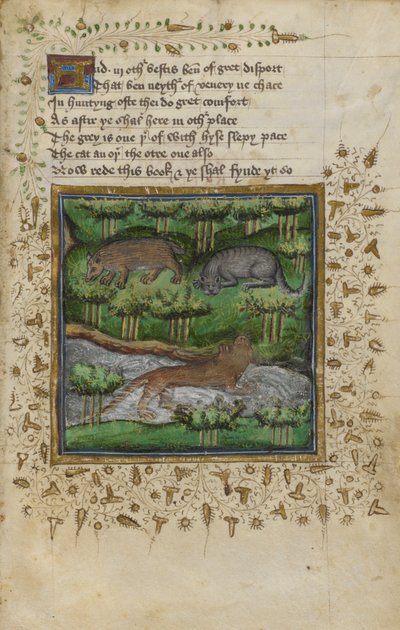 And in othr bestis ben of gret disport
That ben neythr of venery ne chace
In huntyng ofte thei do gret comfort
As aftir ye shal here in othr place
The grey is one yr of with hyse slepy pace
The cat an oyr the otre one also
Now rede this book & ye shal fynde yt so